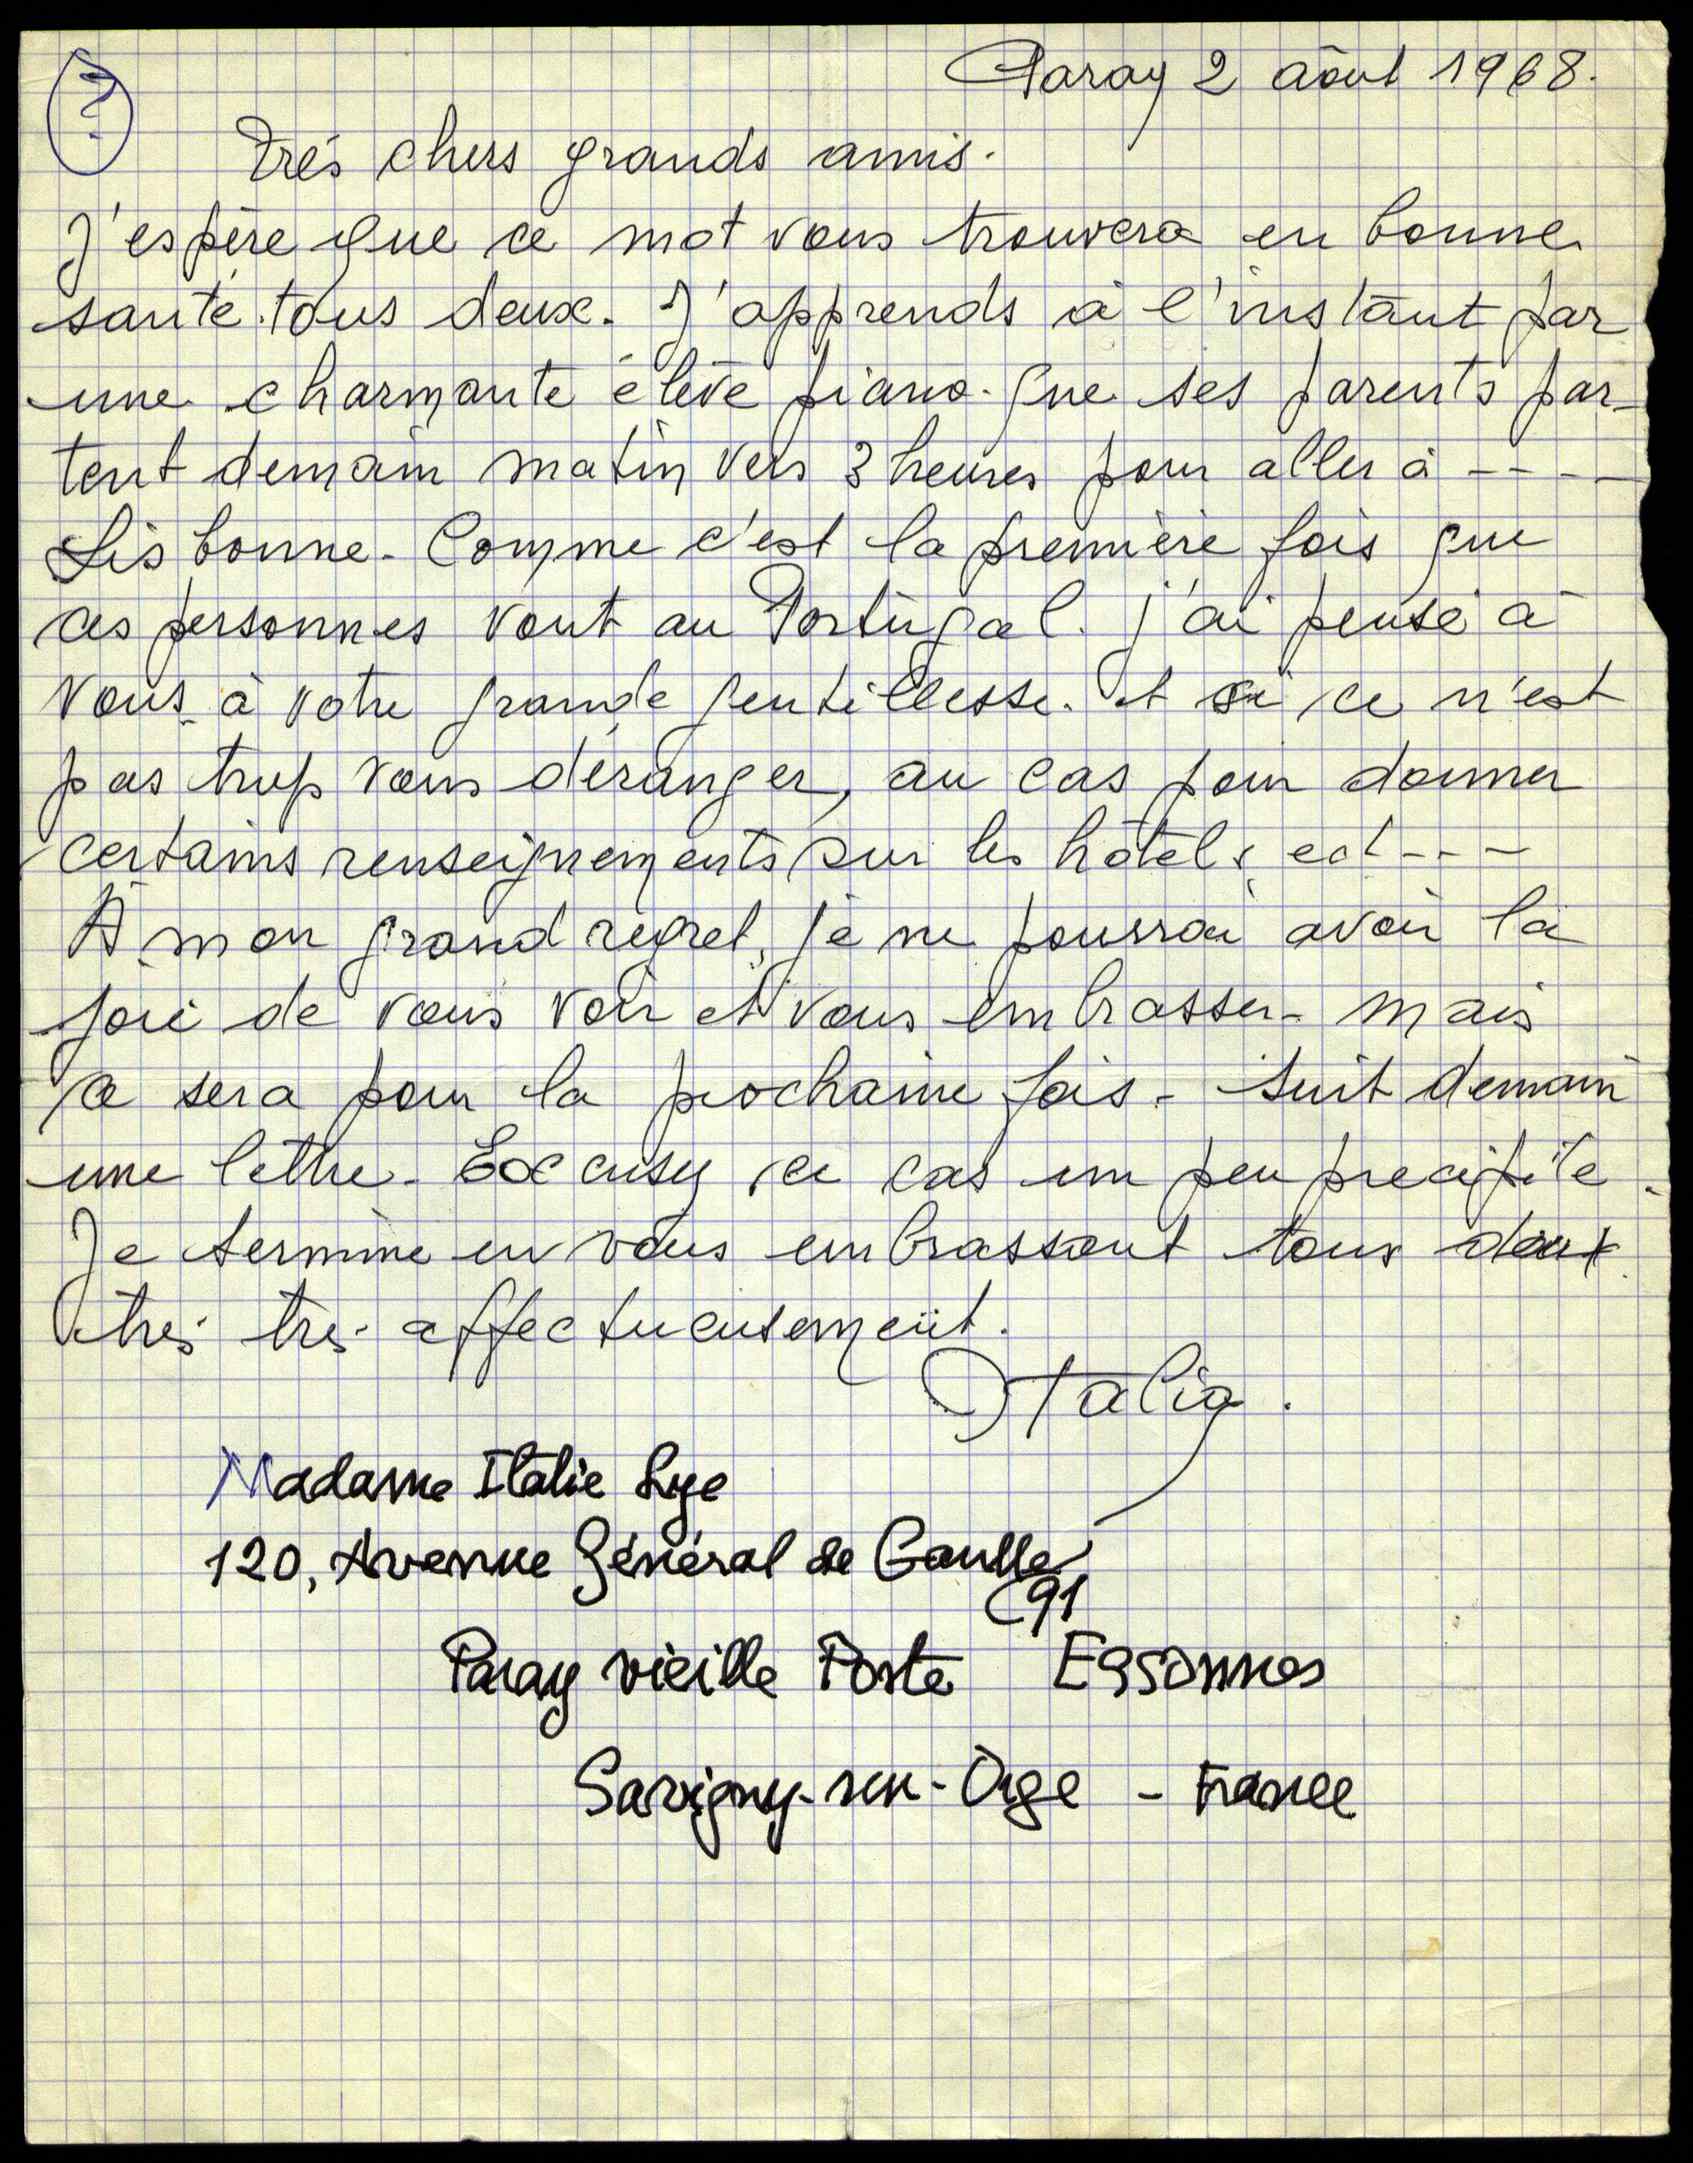 ?
Paray 2 août 1968.
Trés chers grands amis.
J'espère que ce mot vous trouvera en bonne
santé tous deux. J'apprends à l'instant par
une charmante élève piano. que ses parents par-
tent demain matin vers 3 heures pour aller à ----
Lisbonne. Comme c'est la première fois que
ces personnes vont au Portugal. j'ai pensé à
vous à votre grande gentillesse. et si ce n'est
pas trop vous déranger, au cas pour donner
certains renseignements sur les hôtels, ect---
À mon grand regret, je ne pourrai avoir la
joie de vous voir et vous embrasser - mais
ce sera pour la prochaine fois - Suit demain
une lettre. Excusez ce cas un peu precipité.
Je termine en vous embrassant tous deux
très très affectueusement.
Italia.
Madame Italie Lye
120, Avenue Général de Gaulle
91
Paray vieille Poste Essonnes
Savigny-sur-Orge - France